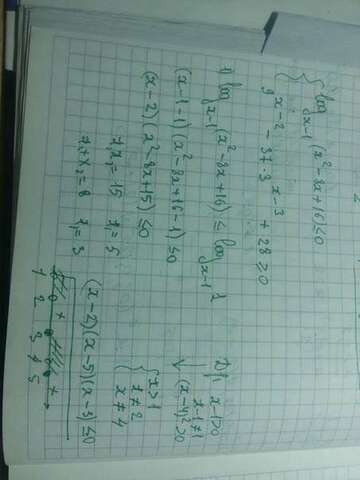 { log_{x-1}(x²-8x+16) ≤ 0
9^{x-2} - 37·3^{x-3} + 28 ≥ 0
1) log_{x-1}(x²-8x+16) ≤ log_{x-1} 1
(x-1-1)(x²-8x+16-1) ≤ 0
(x-2)(x²-8x+15) ≤ 0
x₁x₂=15 x₁=5
x₁+x₂=8 x₂=3
x-1>0
x-1≠1
(x-4)²>0
{ x>1
x≠2
x≠4
(x-2)(x-5)(x-3) ≤ 0
- + - +
1 2 3 4 5